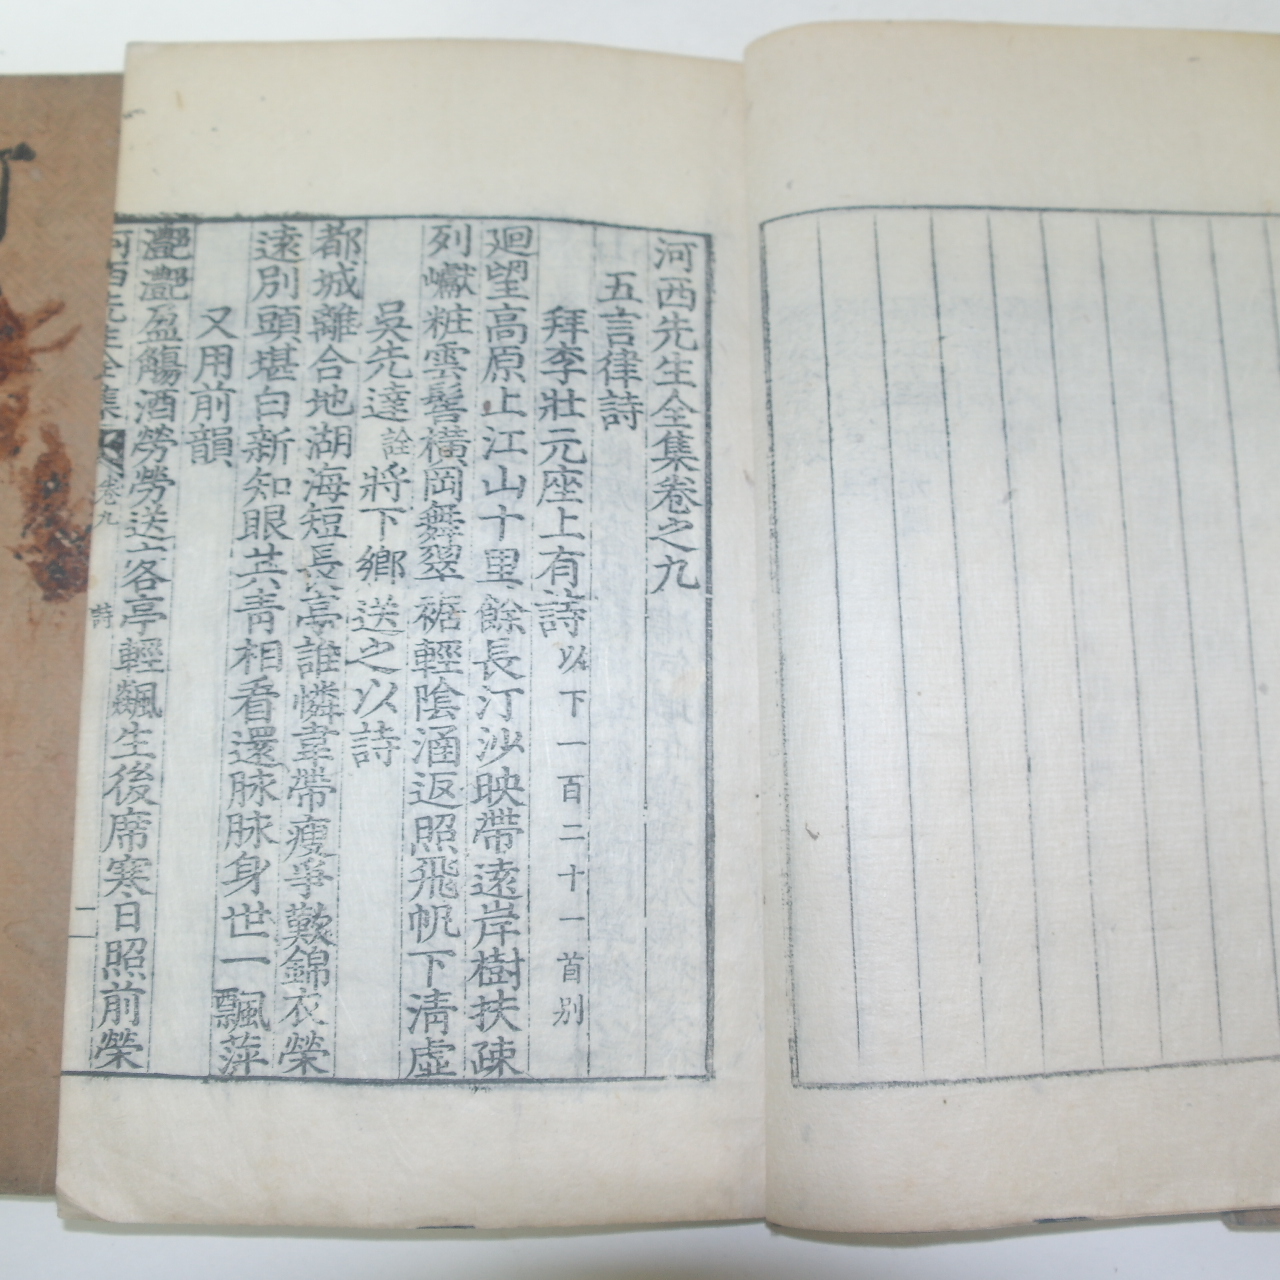 河西先生全集卷之九
五言律詩
拜李壯元座上有詩以下一百二十一首別
迴望高原上江山十里餘長汀沙映帶遠岸樹扶疎
列巘粧雲髻橫岡舞翠裾輕陰涵返照飛帆下淸虛
吳先達詮將下鄉送之以詩
都城離合地湖海短長亭誰憐韋帶瘦爭歎錦衣榮
遠別頭堪白新知眼共靑相看還脉脉身世一飄萍
又用前韻
灩灩盈觴酒勞勞送客亭輕飆生後席寒日照前榮
河西先生全集 卷九 詩 一